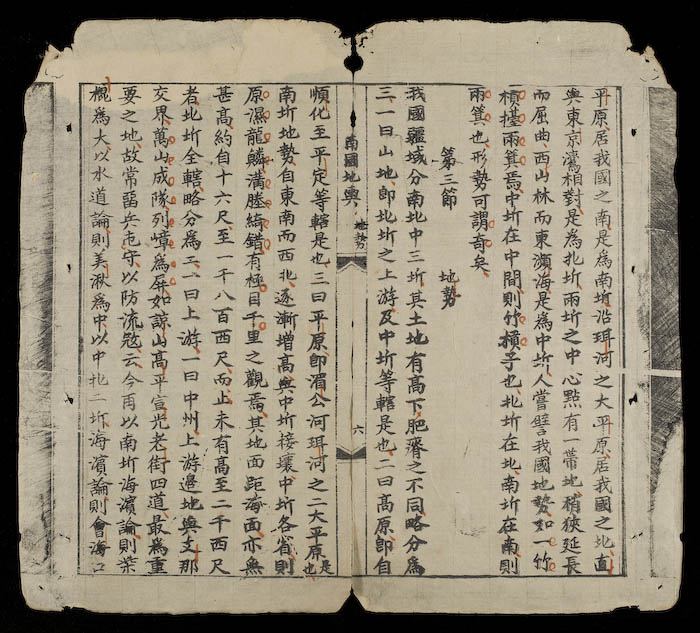 平原居我國之南是為南圻沿珥河之大平原居我國之北直
與東京灣相對是為北圻兩圻之中心點有一帶地稍狹延長
而屈曲西山林而東瀕海是為中圻人嘗譬我國地勢如一竹
槓擡兩箕焉中圻在中間則竹槓子也北圻在北南圻在南則
兩箕也形勢可謂奇矣
第三節 地勢
我國疆域分南北中三圻其土地有高下肥瘠之不同略分為
三一曰山地即北圻之上游及中圻等轄是也二曰高原即自
南國地輿 地勢 六
順化至平定等轄是也三曰平原即湄公河珥河之二大平原是也
南圻地勢自東南而西北逐漸增高與中圻接壤中圻各省則
原濕龍鱗溝塍綺錯有極目千里之觀焉其地面距海面亦無
甚高約自十六尺至一千八百西尺而止未有高至二千西尺
者北圻全轄略分為二一曰上游一曰中州上游邊地與支那
交界萬山成隊列嶂為屏如諒山高平宣光老街四道最為重
要之地故常留兵屯守以防流寇云今再以南圻海濱論則柴
棍為大以水道論則美湫為中以中北二圻海濱論則會海口